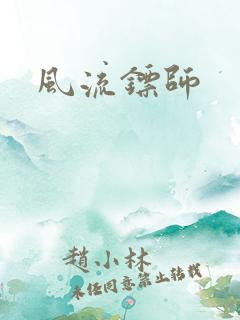 風流鏢師
趙小林
未經同意禁止轉載